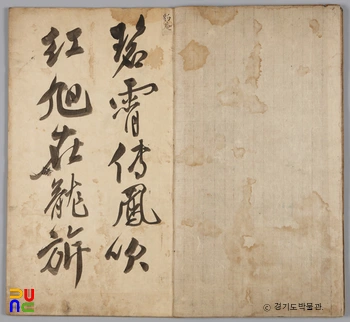 碧霄傳鳳吹
紅旭在龍旂
© 경기도박물관